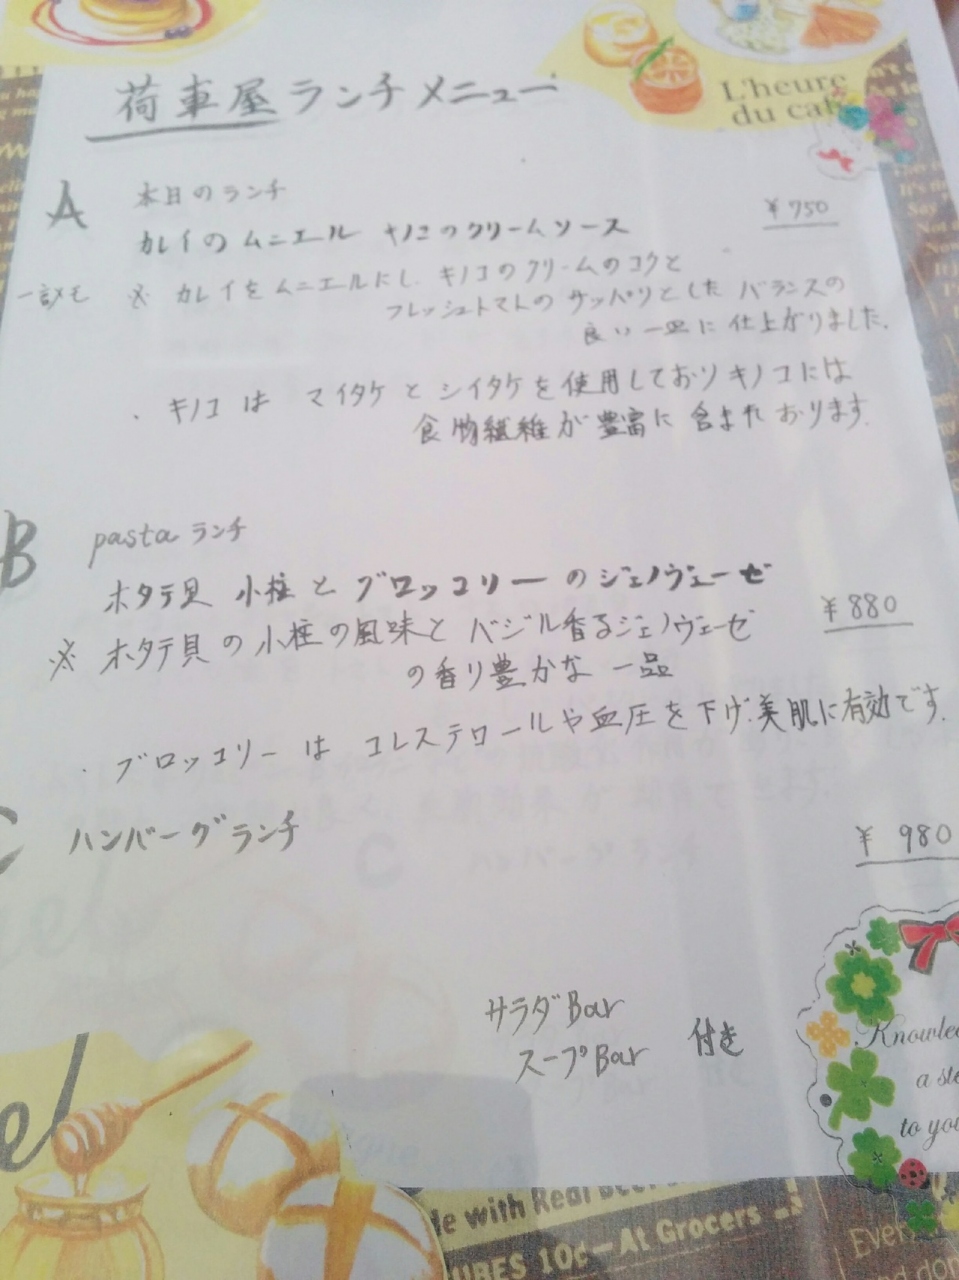 荷車屋ランチメニュー
L'heure
du café
A 本日のランチ
¥750
カレイのムニエル キノコのクリームソース
一言メモ ※ カレイをムニエルにし、キノコのクリームのコクと
フレッシュトマトのサッパリとした バランスの
良い一皿に仕上がりました。
・キノコは マイタケとシイタケを使用しておりキノコには
食物繊維が豊富に含まれております。
B pastaランチ
ホタテ貝 小柱とブロッコリーのジェノヴェーゼ
¥880
※ ホタテ貝の小柱の風味とバジル香るジェノヴェーゼ
の香り豊かな一品
・ブロッコリーは コレステロールや血圧を下げ、美肌に有効です。
C ハンバーグランチ
¥980
サラダBar
スープBar 付き
Knowle
a ste
to you
le with Real
UBES 10¢—At Grocers
Every